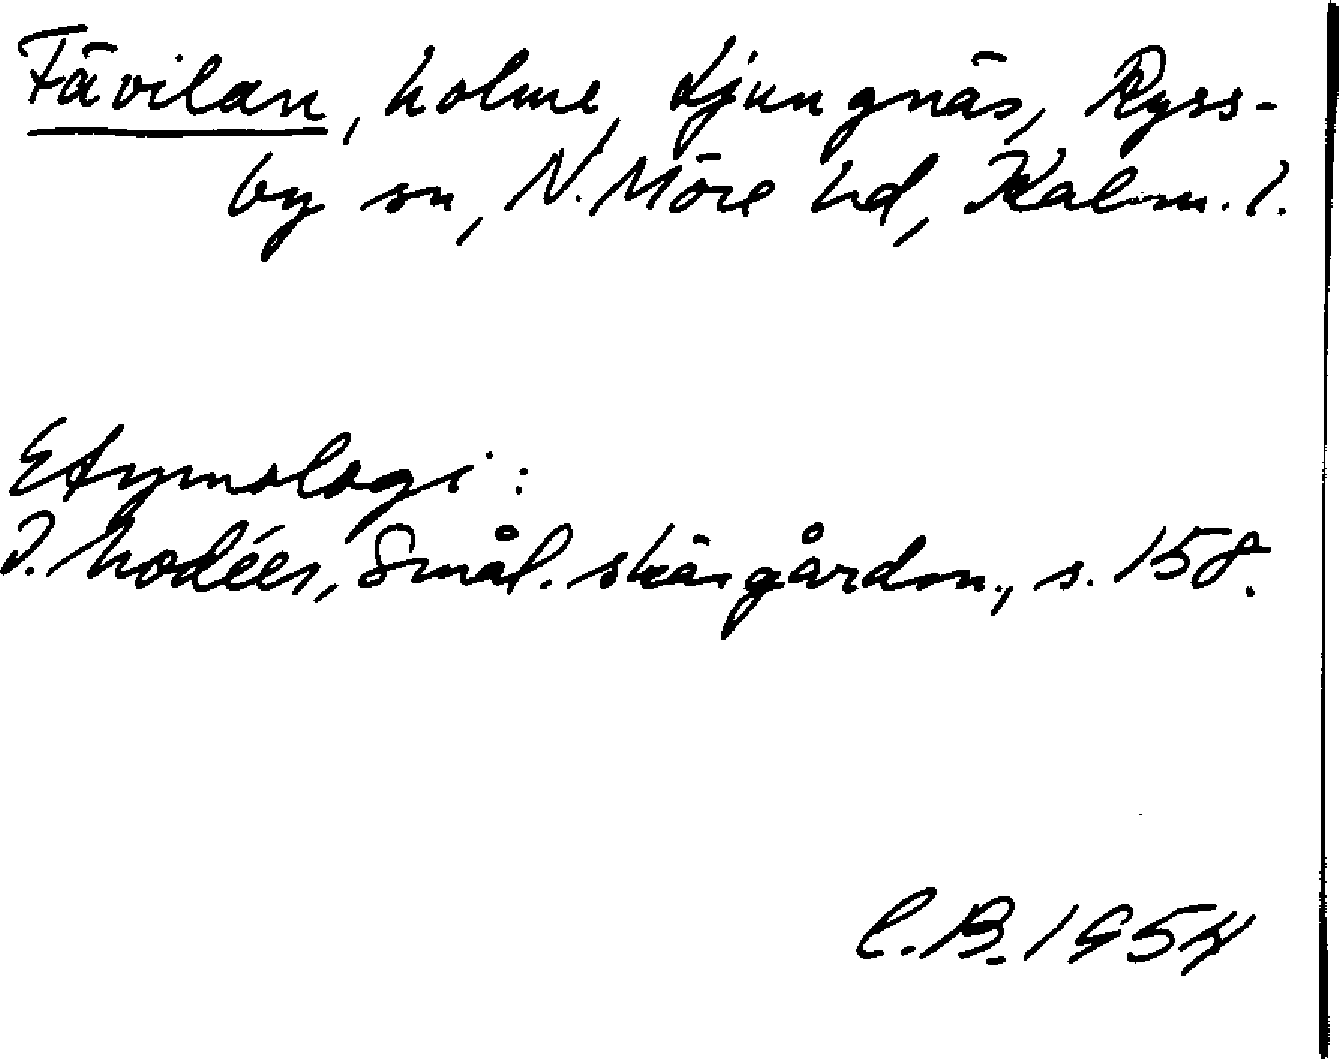 Fävilan, holme, Ljungnäs, Ryss-
by sn, N. Möre hd, Kalm. l.
Etymologi:
I. Modéer, Smål. skärgårdsn., s. 158.
C.B. 1954